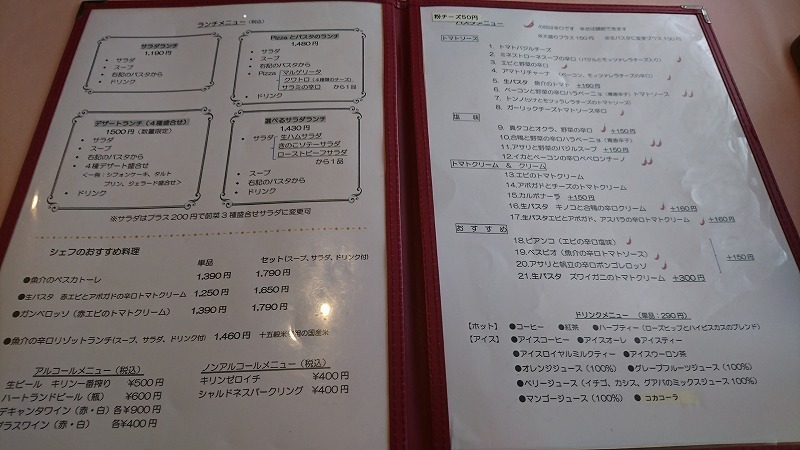 ランチメニュー (税込)
サラダランチ
1,190円
・ サラダ
・ スープ
・ 右記のパスタから
・ ドリンク
Pizzaとパスタのランチ
1,480円
・ サラダ
・ スープ
・ 右記のパスタから
・ Pizza
マルゲリータ
クワトロ (4種類のチーズ)
サラミの辛口 から1品
・ ドリンク
デザートランチ(4種盛合せ)
1500円 (数量限定)
・ サラダ
・ スープ
・ 右記のパスタから
・ 4種デザート盛合せ
<一例:シフォンケーキ、タルト
プリン、ジェラード盛合せ>
・ ドリンク
選べるサラダランチ
1,430円
・ サラダ
生ハムサラダ
きのこソテーサラダ
ローストビーフサラダ
から1品
・ スープ
・ 右記のパスタから
・ ドリンク
※サラダはプラス200円で前菜3種盛合せサラダに変更可
シェフのおすすめ料理
単品 セット(スープ、サラダ、ドリンク付)
●魚介のペスカトーレ 1,390円 1,790円
●生パスタ 赤エビとアボガドの辛口トマトクリーム 1,250円 1,650円
●ガンベロッソ(赤エビのトマトクリーム) 1,390円 1,790円
●魚介の辛口リゾットランチ(スープ、サラダ、ドリンク付) 1,460円 十五穀米 の国産米
アルコールメニュー(税込)
生ビール キリン一番搾り ¥500円
ハートランドビール(瓶) ¥600円
デキャンタワイン(赤・白)各¥900円
グラスワイン(赤・白) 各¥400円
ノンアルコールメニュー(税込)
キリンゼロイチ ¥400円
シャルドネスパークリング ¥400円
粉チーズ50円
トマトソース
1. トマトバジルチーズ
2. ミネストローネスープの辛口
3. エビと野菜の辛口
4. アマトリチャーナ (ベーコン、モッツァレラチーズ入)
5. 生パスタ 魚介のトマト +160円
6. ベーコンと野菜の辛口ハラペーニョ(青唐辛子)トマトソース
7. トンノ(シーチキンとモッツァレラチーズのトマトソース)
8. ガーリックチーズトマトソース辛口
塩味
9. 真タコとオクラ、野菜の辛口 +150円
10.合鴨と野菜の辛口ハラペーニョ (青唐辛子)
11.アサリと野菜のバジルスープ +150円
12.イカとベーコンの辛口ペペロンチーノ
トマトクリーム & クリーム
13.エビのトマトクリーム
14.アボガドとチーズのトマトクリーム
15.カルボナーラ +150円
16.生パスタ キノコと合鴨の辛口クリーム +160円
17.生パスタエビとアボガド、アスパラの辛口トマトクリーム +160円
おすすめ
18.ビアンコ (エビの辛口塩味)
19.ベスビオ (魚介の辛口トマトソース)
20.アサリと帆立の辛口ボンゴレロッソ
+150円
21.生パスタ ズワイガニのトマトクリーム +300円
ドリンクメニュー (単品:290円)
【ホット】 ●コーヒー ●紅茶 ●ハーブティー (ローズヒップとハイビスカスのブレンド)
【アイス】 ●アイスコーヒー ●アイスオーレ ●アイスティー
●アイスロイヤルミルクティー ●アイスウーロン茶
●オレンジジュース (100%) ●グレープフルーツジュース (100%)
●ベリージュース (イチゴ、カシス、グアバのミックスジュース 100%)
●マンゴージュース (100%) ● コカコーラ